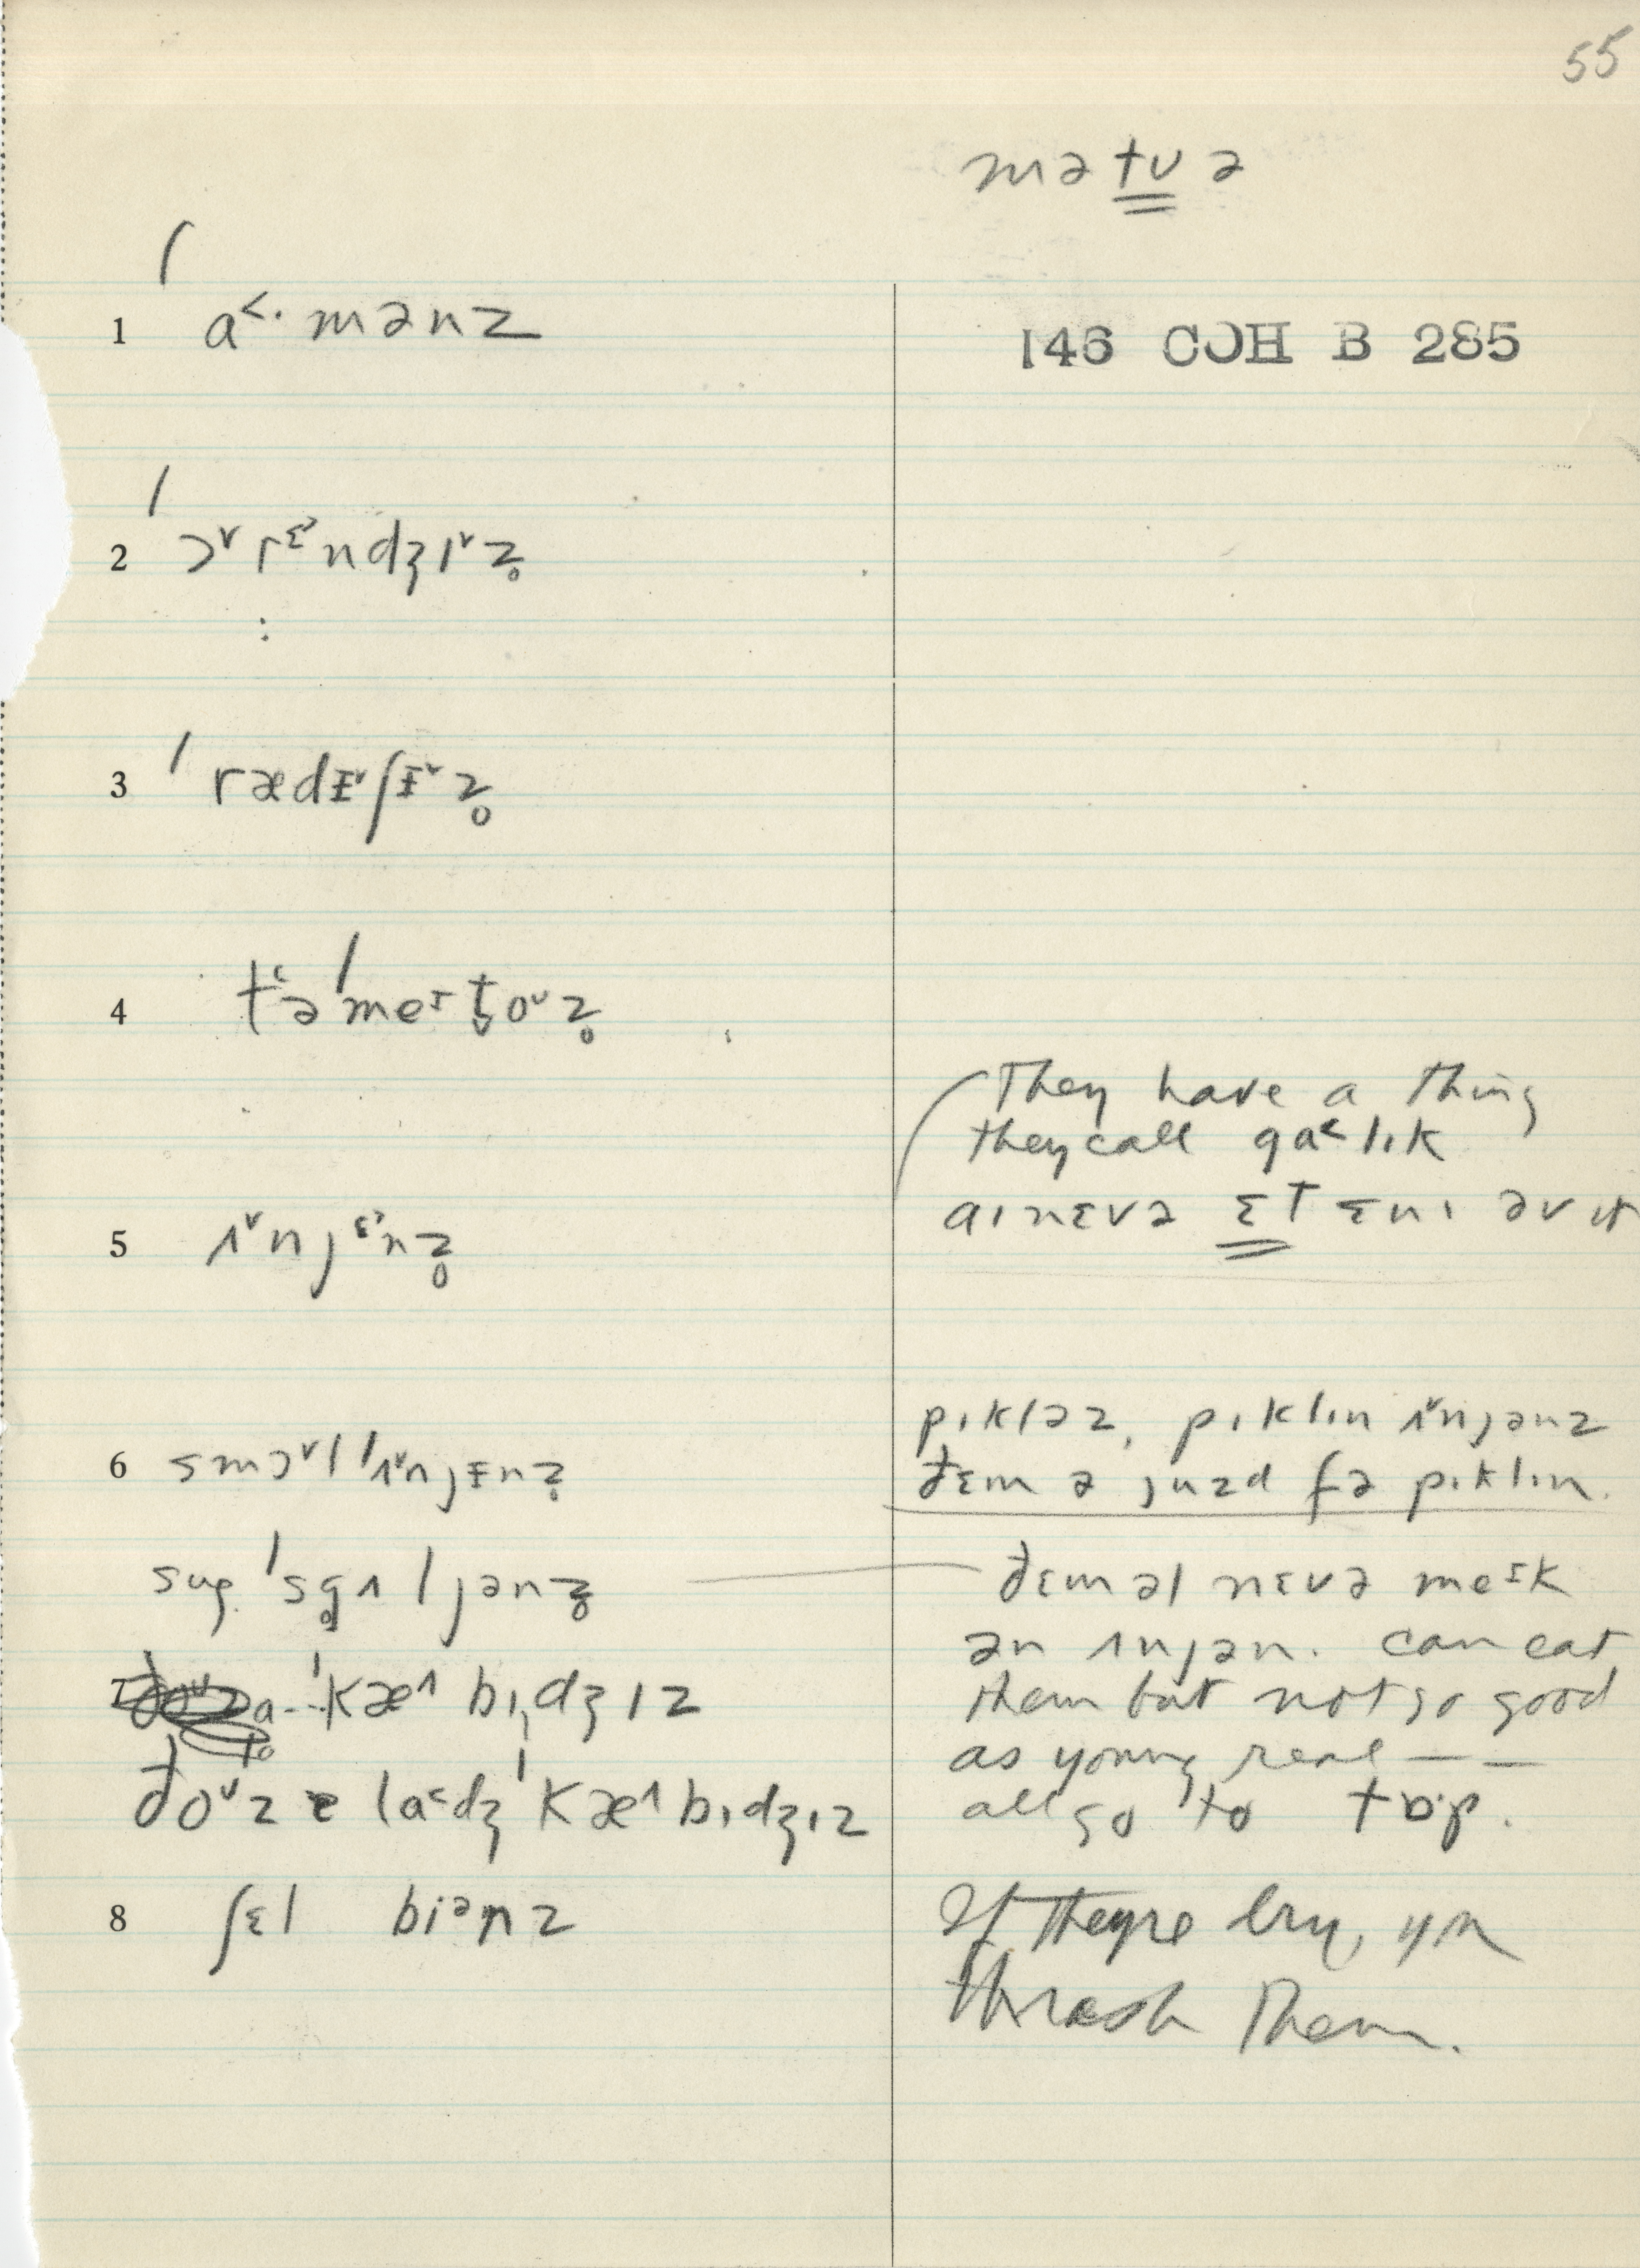 55
mətʋə
146 COH B 285
1 ˈa˂·mənz
2 ˈɔ˅rɛ˃ndʒɪ˅z̥
3 ˈrædᵻ˅ʃᵻ˅z̥
4 tʻəˈmeɪt̬oᶷz̥
They have a thing
they call ga˂lɪk
aɪ nɛvə ɛt ɛnɪ əv it
5 ʌ˅njɛ˃nz̥
6 smɔ˅l ˈʌ˅njᵻnz̥
pɪkləz, pɪklɪn ʌ˅njənz
ðɛm ə juzd fə pɪklɪn.
sug̥ ˈsg̥ʌljənz̥
ðɛm əl nɛvə meɪk
ən ʌnjən. can eat
them but not so good
as young real — —
all go to tɒp.
7 a ˈkæ^bɪdʒɪz
ðo˅z ə la˂dʒ ˈkæ^bɪdʒɪz
8 ʃɛl biənz
If they're dry, you
thrash them.